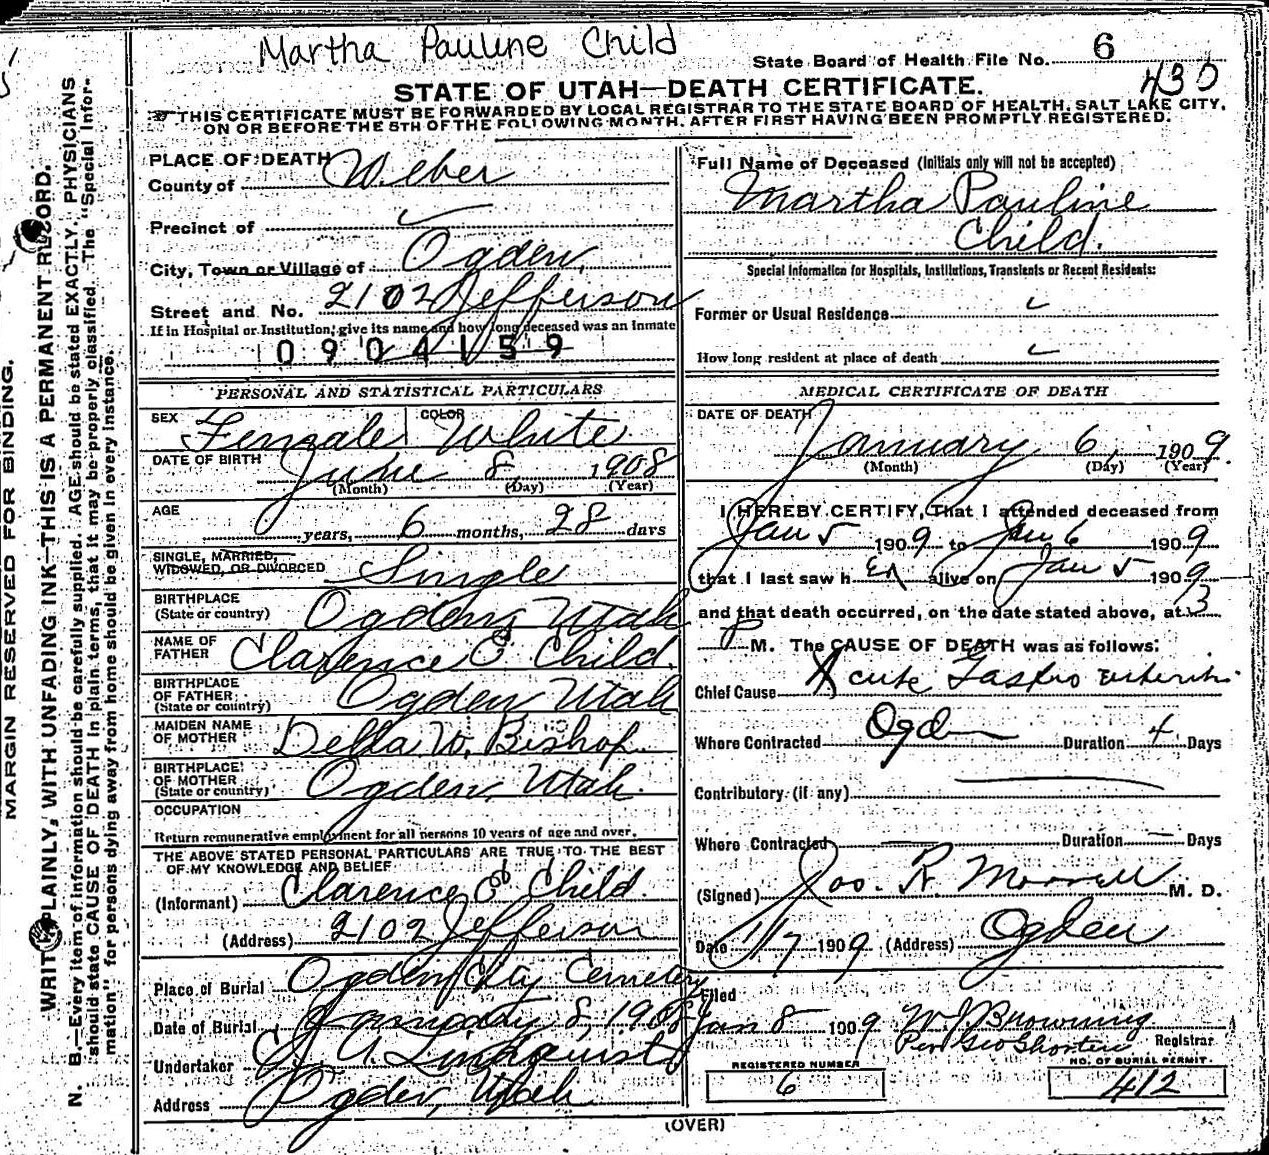 Martha Pauline Child
State Board of Health File No. 6
430
STATE OF UTAH—DEATH CERTIFICATE.
THIS CERTIFICATE MUST BE FORWARDED BY LOCAL REGISTRAR TO THE STATE BOARD OF HEALTH, SALT LAKE CITY,
ON OR BEFORE THE 5TH OF THE FOLLOWING MONTH, AFTER FIRST HAVING BEEN PROMPTLY REGISTERED.
MARGIN RESERVED FOR BINDING.
WRITE PLAINLY, WITH UNFADING INK—THIS IS A PERMANENT RECORD.
N. B.—Every item of information should be carefully supplied. AGE should be stated EXACTLY. PHYSICIANS
should state CAUSE OF DEATH in plain terms, that it may be properly classified. The "Special Infor-
mation" for persons dying away from home should be given in every instance.
PLACE OF DEATH
County of Weber
Precinct of
City, Town or Village of Ogden,
Street and No. 2102 Jefferson
If in Hospital or Institution, give its name and how long deceased was an inmate
0904159
PERSONAL AND STATISTICAL PARTICULARS
SEX Female COLOR White
DATE OF BIRTH June 8 1908
(Month) (Day) (Year)
AGE
years, 6 months, 28 days
SINGLE, MARRIED,
WIDOWED, OR DIVORCED Single
BIRTHPLACE
(State or country) Ogden, Utah
NAME OF
FATHER Clarence O. Child.
BIRTHPLACE
OF FATHER
(State or country) Ogden Utah
MAIDEN NAME
OF MOTHER Della W. Bishop.
BIRTHPLACE
OF MOTHER
(State or country) Ogden, Utah.
OCCUPATION
Return remunerative employment for all persons 10 years of age and over.
THE ABOVE STATED PERSONAL PARTICULARS ARE TRUE TO THE BEST
OF MY KNOWLEDGE AND BELIEF
(Informant) Clarence O Child.
(Address) 2102 Jefferson
Place of Burial Ogden City Cemetery
Date of Burial January 8, 1909
Undertaker Lindquist
Address Ogden, Utah
Full Name of Deceased (Initials only will not be accepted)
Martha Pauline
Child.
Special Information for Hospitals, Institutions, Transients or Recent Residents:
Former or Usual Residence
How long resident at place of death
MEDICAL CERTIFICATE OF DEATH
DATE OF DEATH
January 6, 1909.
(Month) (Day) (Year)
I HEREBY CERTIFY, That I attended deceased from
Jan 5 1909 to Jan 6 1909
that I last saw her alive on Jan 5 1909
and that death occurred, on the date stated above, at 3
P M. The CAUSE OF DEATH was as follows:
Chief Cause Acute Gastro enteritis
Where Contracted Ogden Duration 4 Days
Contributory (if any)
Where Contracted Duration — Days
(Signed) Jos. R Morrell M. D.
Date 1/7 1909 (Address) Ogden
Filed
Jan 8 1909 W J Browning
Per Geo Shorten Registrar
REGISTERED NUMBER
6
NO. OF BURIAL PERMIT.
412
(OVER)